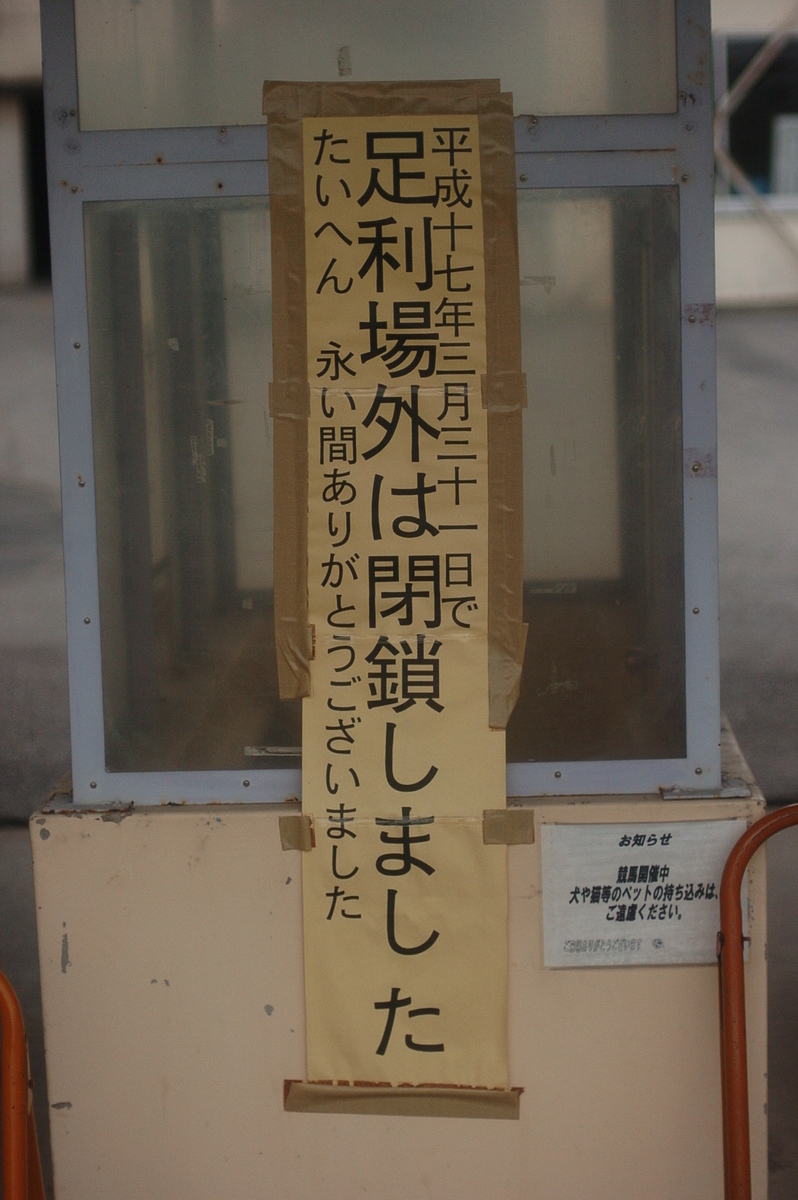 平成十七年三月三十一日で
足利場外は閉鎖しました
たいへん 永い間ありがとうございました
お知らせ
競馬開催中
犬や猫等のペットの持ち込みは、
ご遠慮ください。